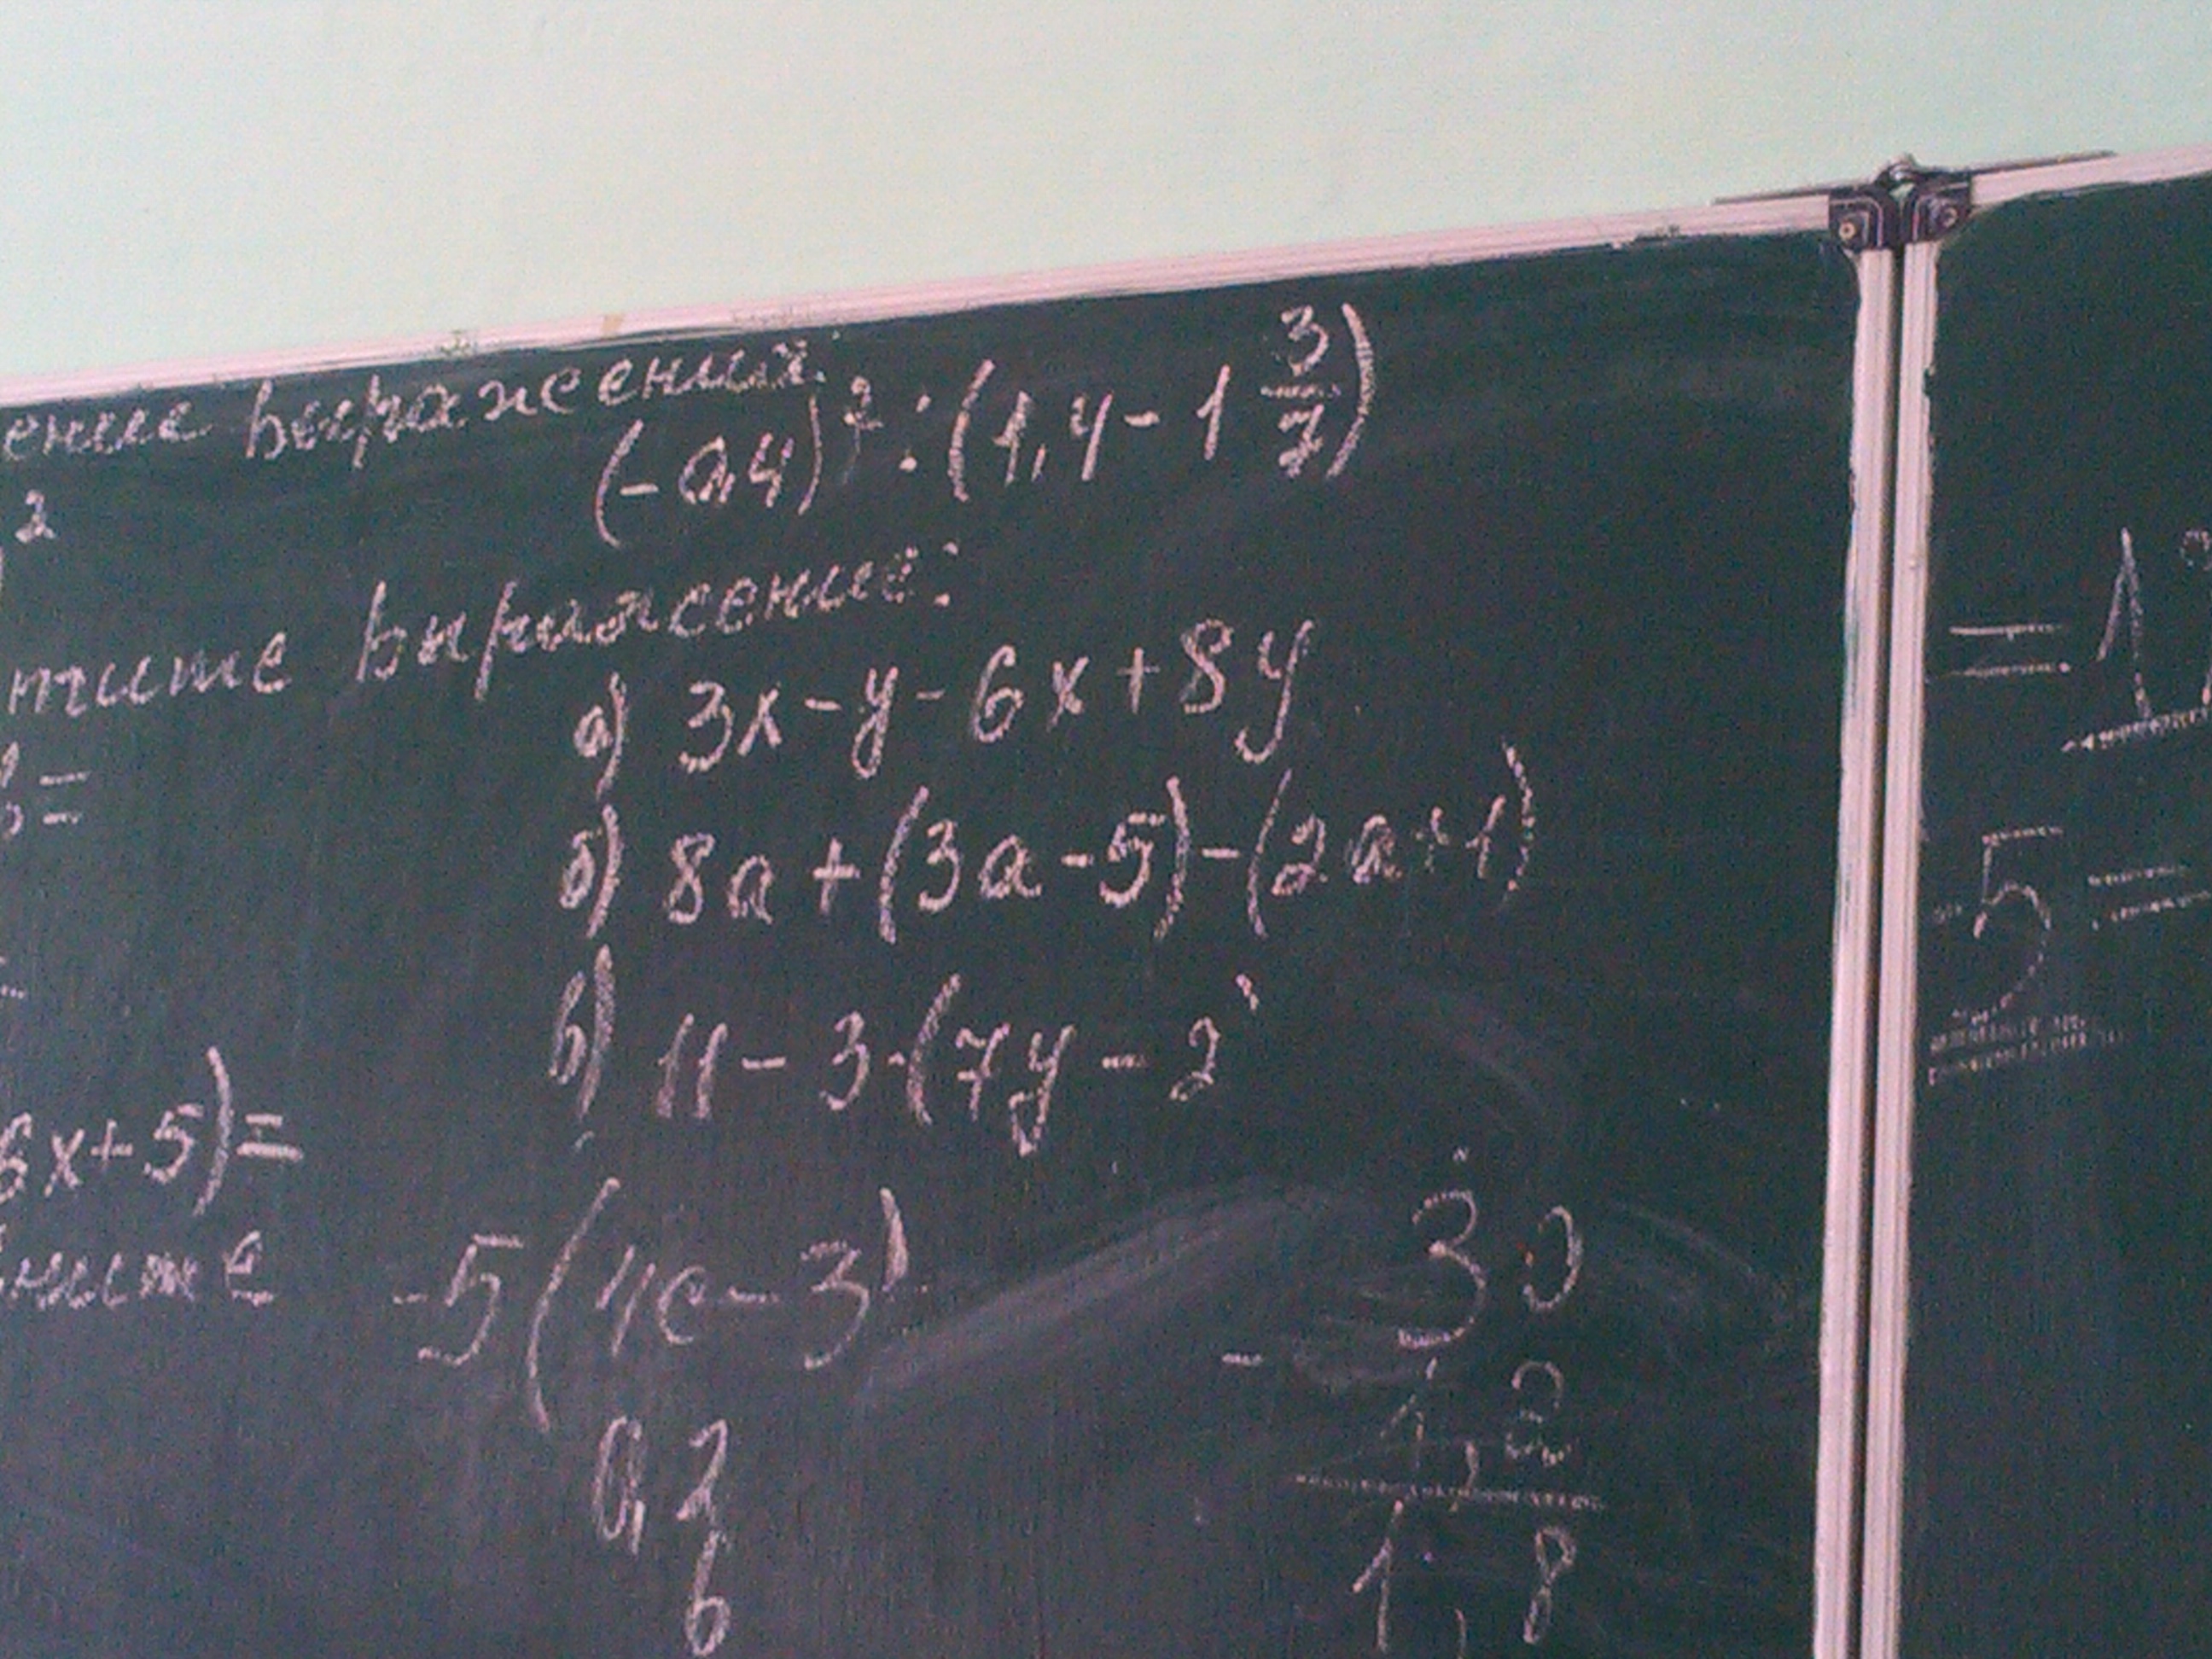 ение выражений:
2
(-0,4)² : (1,4 - 1 3/7)
тите выражение:
а) 3x - y - 6x + 8y
b =
б) 8a + (3a - 5) - (2a + 1)
в) 11 - 3·(7y - 2)
6x + 5) =
ните -5(4c - 3)
0,2
6
30
- 1,2
1,8
= 1
-5 =